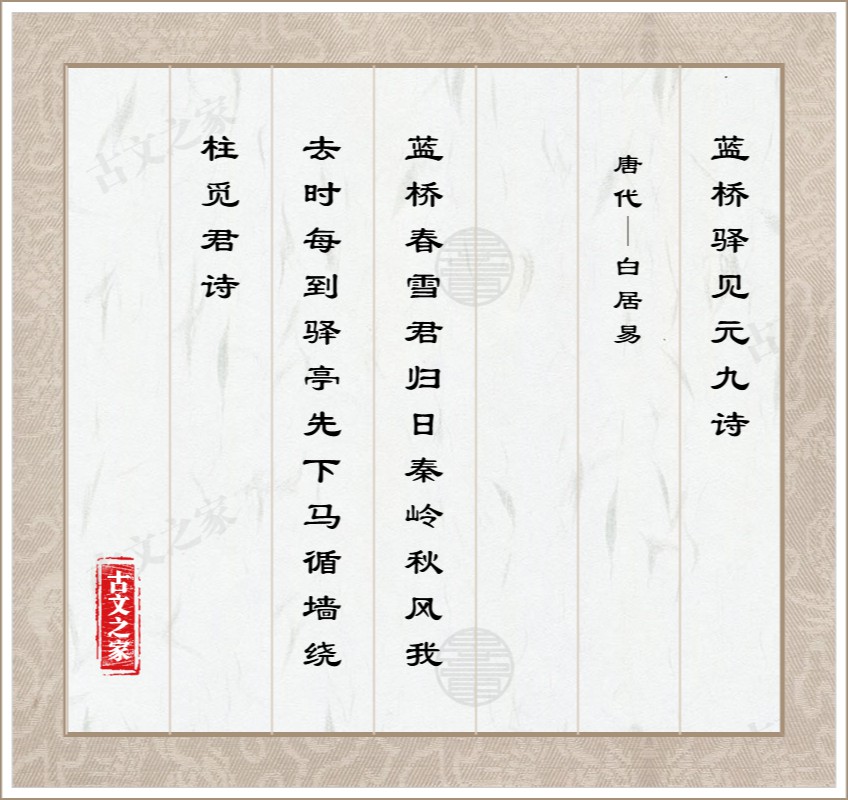 蓝桥驿见元九诗
唐代—白居易
蓝桥春雪君归日秦岭秋风我
去时每到驿亭先下马循墙绕
柱觅君诗
古文之家
古文之家
文之家
古